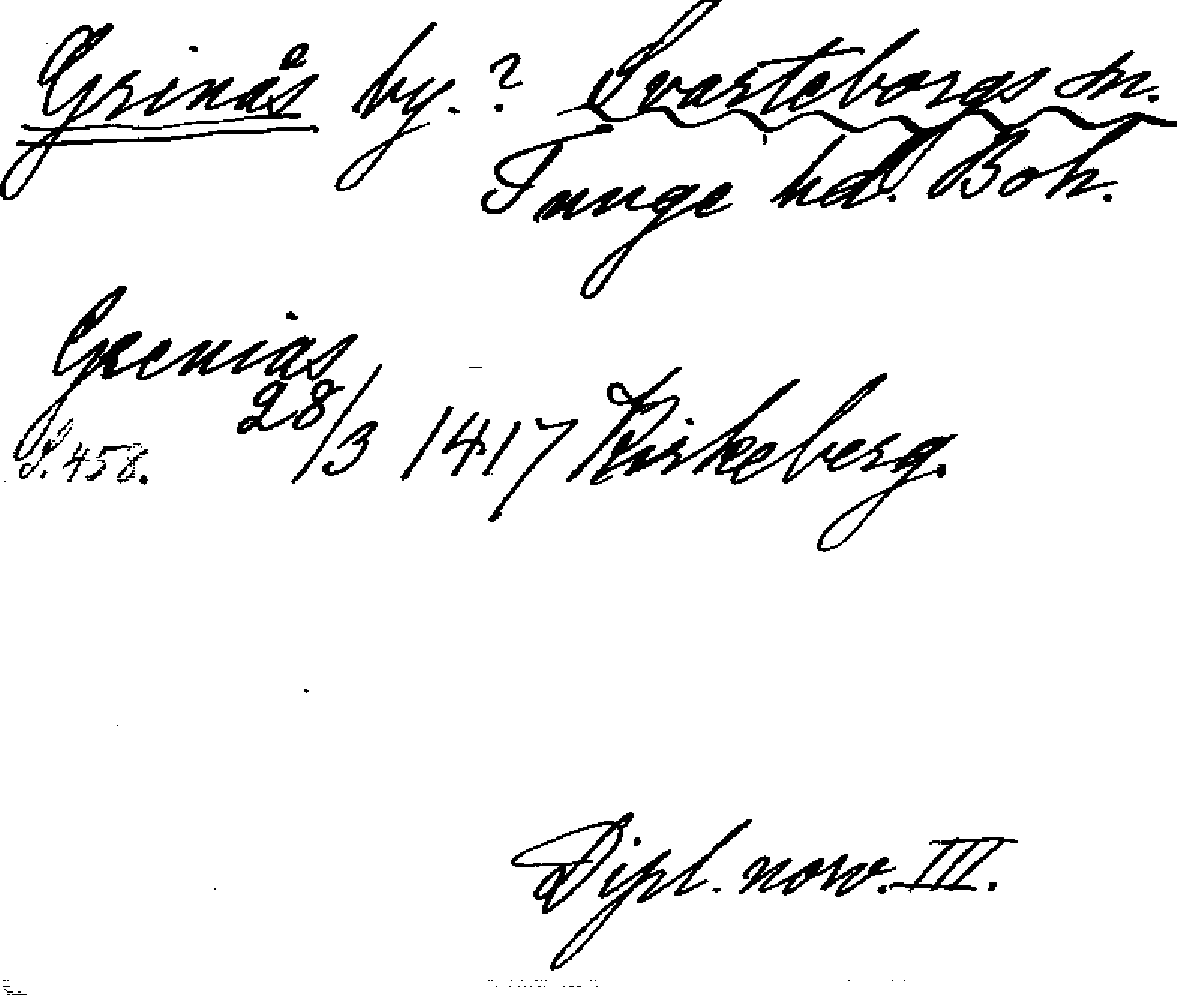 Grinås by. ? Svarteborgs sn.
Tunge hd. Boh.
Grenias
S. 458. 28/3 1417 Kirkeberg.
Dipl. norv. III.